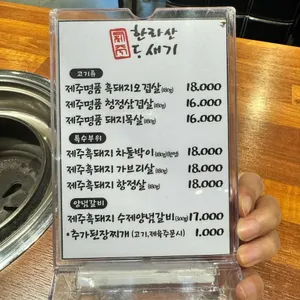 한라산
도새기
고기류
제주명품 흑돼지오겹살(180g) 18.000
제주명품 청정삼겹살(180g) 16.000
제주명품 돼지목살(180g) 16.000
특수부위
제주흑돼지 차돌박이 18.000
제주흑돼지 가브리살(180g) 18.000
제주흑돼지 항정살(180g) 18.000
양념갈비
제주흑돼지 수제양념갈비(300g) 17.000
•추가된장찌개 (고기,제육주문시) 1.000